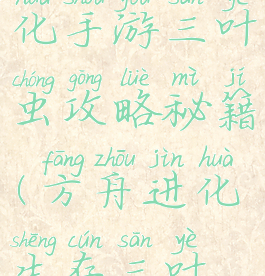 huà shǒu yóu sān yè
化手游三叶
chóng gōng lüè mì jí
虫攻略秘籍
fāng zhōu jìn huà
(方舟进化
shēng cún sān yè
生存三叶